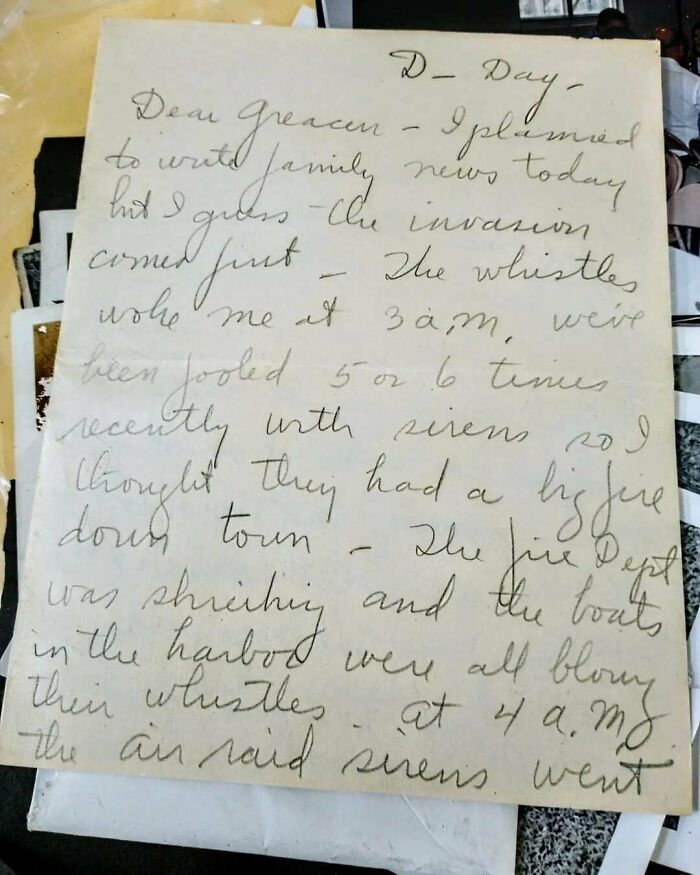 D- Day-
Dear Greacen - I planned
to write family news today
but I guess the invasion
comes first - The whistles
woke me at 3 a.m. we've
been fooled 5 or 6 times
recently with sirens so I
thought they had a big fire
down town - The fire Dept
was shrieking and the boats
in the harbor were all blowing
their whistles. At 4 a.m.
the air raid sirens went